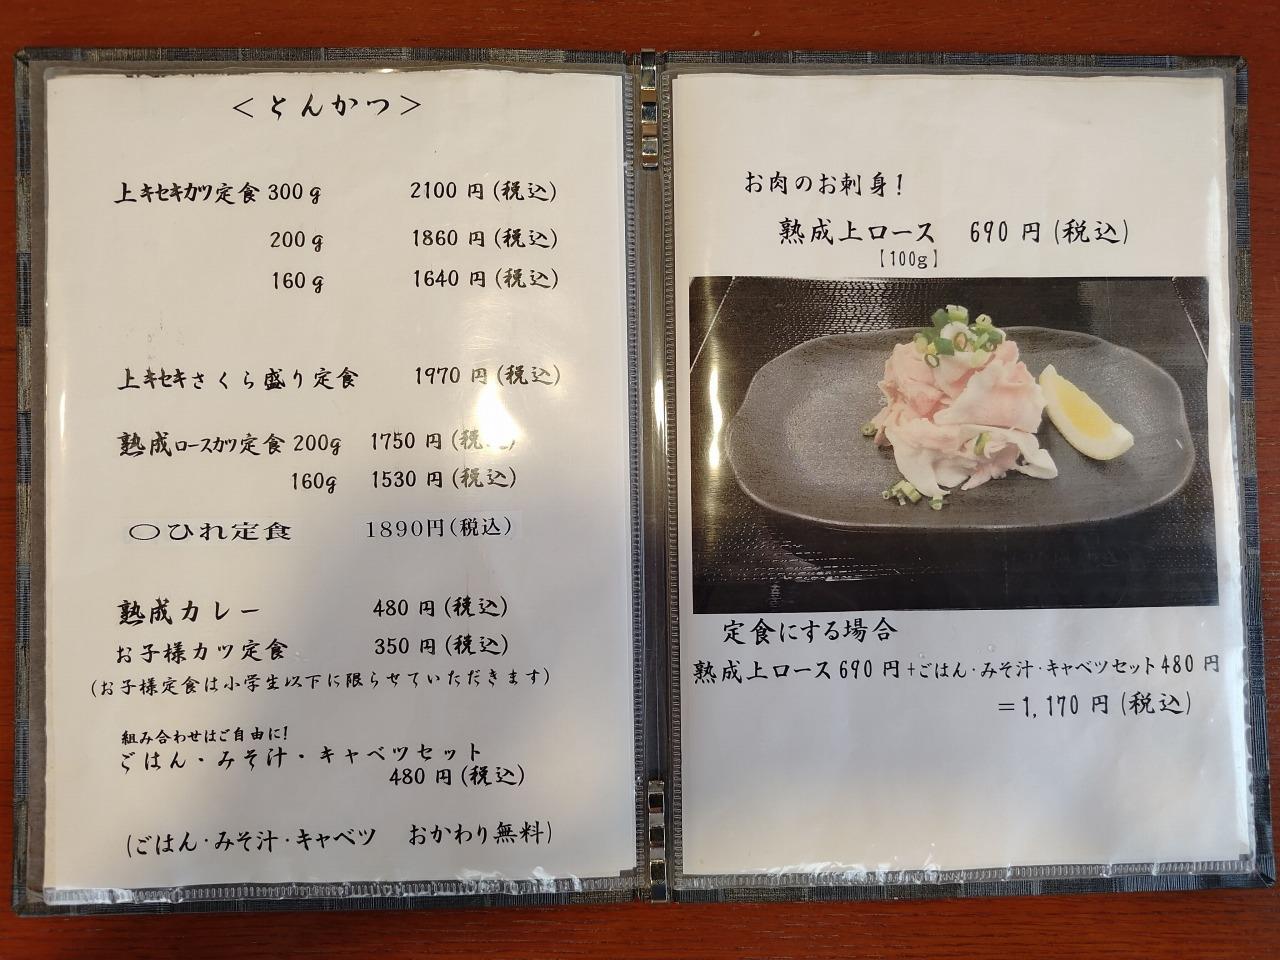 ＜とんかつ＞
上キセキカツ定食 300g 2100 円(税込)
200g 1860 円(税込)
160g 1640 円(税込)
上キセキさくら盛り定食 1970 円(税込)
熟成ロースカツ定食 200g 1750 円(税込)
160g 1530 円(税込)
〇ひれ定食 1890円(税込)
熟成カレー 480 円(税込)
お子様カツ定食 350 円(税込)
(お子様定食は小学生以下に限らせていただきます)
組み合わせはご自由に!
ごはん・みそ汁・キャベツセット
480 円(税込)
(ごはん・みそ汁・キャベツ おかわり無料)
お肉のお刺身!
熟成上ロース 690 円(税込)
【100g】
定食にする場合
熟成上ロース690円+ごはん・みそ汁・キャベツセット480円
=1,170 円(税込)